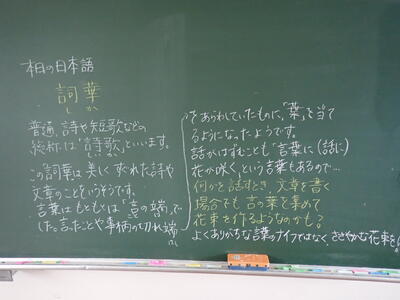 柏の日本語
詞華
し か
普通、詩や短歌などの
総称は「詩歌」といいます。
しいか
この詞華は美しく優れた詩や
文章のことをいうそうです。
言葉はもともとは「言の端」で
した。言ったことや事柄の切れ端
をあらわしていたものに、「葉」を当て
るようになったようです。
話がはずむことも「言葉に(話に)
花が咲く」という言葉もあるので…
何かを話すとき、文章を書く
場合でも 言の葉を集めて
花束を作るようなのかも？
よくありがちな言葉のナイフではなく ささやかな花束を